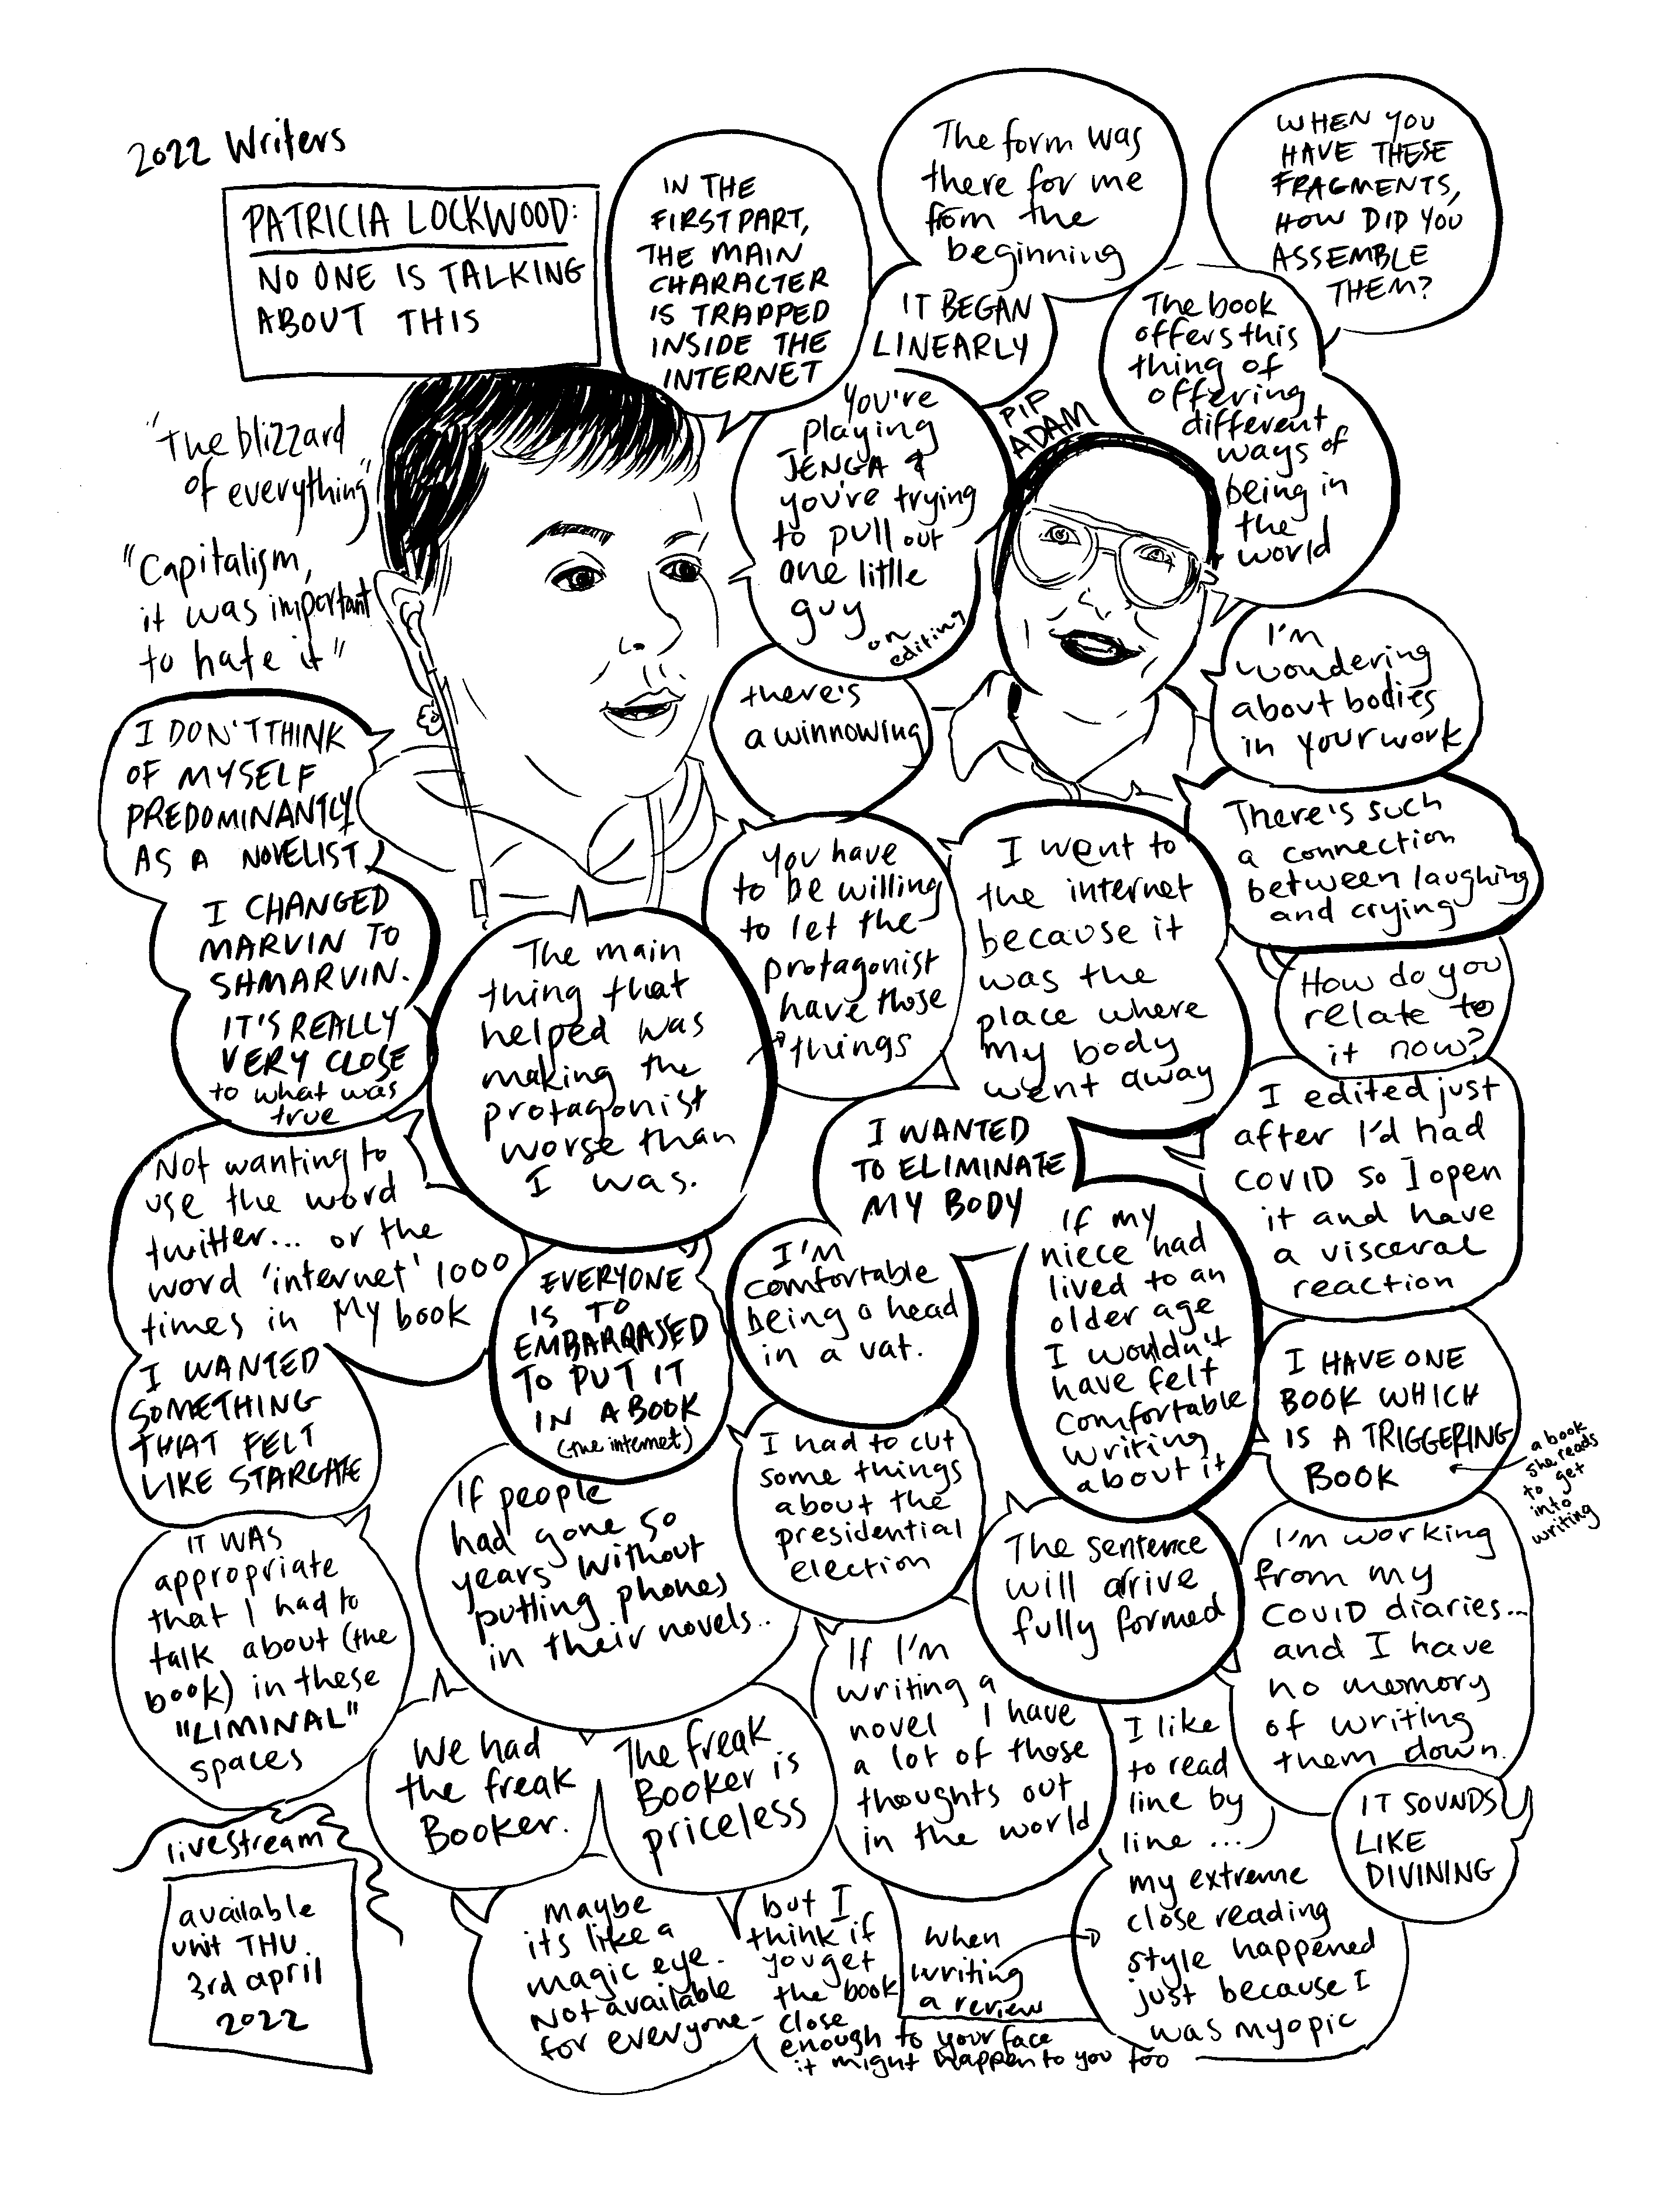 2022 Writers
PATRICIA LOCKWOOD:
NO ONE IS TALKING
ABOUT THIS
"The blizzard
of everything"
"Capitalism,
it was important
to hate it"
IN THE
FIRST PART,
THE MAIN
CHARACTER
IS TRAPPED
INSIDE THE
INTERNET
The form was
there for me
from the
beginning
IT BEGAN
LINEARLY
WHEN YOU
HAVE THESE
FRAGMENTS,
HOW DID YOU
ASSEMBLE
THEM?
The book
offers this
thing of
offering
different
ways of
being in
the
world
PIP
ADAM
You're
playing
JENGA &
you're trying
to pull out
one little
guy
on
editing
there's
a winnowing
I'm
wondering
about bodies
in your work
There's such
a connection
between laughing
and crying
How do you
relate to
it now?
I DON'T THINK
OF MYSELF
PREDOMINANTLY
AS A NOVELIST
I CHANGED
MARVIN TO
SHMARVIN.
IT'S REALLY
VERY CLOSE
to what was
true
The main
thing that
helped was
making the
protagonist
worse than
I was.
You have
to be willing
to let the
protagonist
have those
things
I went to
the internet
because it
was the
place where
my body
went away
I WANTED
TO ELIMINATE
MY BODY
I edited just
after I'd had
COVID so I open
it and have
a visceral
reaction
Not wanting to
use the word
twitter... or the
word 'internet' 1000
times in My book
I WANTED
SOMETHING
THAT FELT
LIKE STARGATE
EVERYONE
IS TO
EMBARRASSED
TO PUT IT
IN A BOOK
(the internet)
I'M
comfortable
being a head
in a vat.
If my
niece had
lived to an
older age
I wouldn't
have felt
comfortable
writing
about it
I HAVE ONE
BOOK WHICH
IS A TRIGGERING
BOOK
a book
she reads
to get
into
writing
IT WAS
appropriate
that I had to
talk about (the
book) in these
"LIMINAL"
spaces
If people
had gone so
years without
putting phones
in their novels..
I had to cut
some things
about the
presidential
election
The sentence
will arrive
fully formed
I'm working
from my
COVID diaries...
and I have
no memory
of writing
them down.
IT SOUNDS
LIKE
DIVINING
We had
the freak
Booker.
The freak
Booker is
priceless
If I'm
writing a
novel I have
a lot of those
thoughts out
in the world
I like
to read
line by
line ...
my extreme
close reading
style happened
just because I
was myopic
when
writing
a review
maybe
its like a
magic eye.
Not available
for everyone-
but I
think if
you get
the book
close
enough to your face
it might happen to you too
livestream
available
unit THU
3rd april
2022